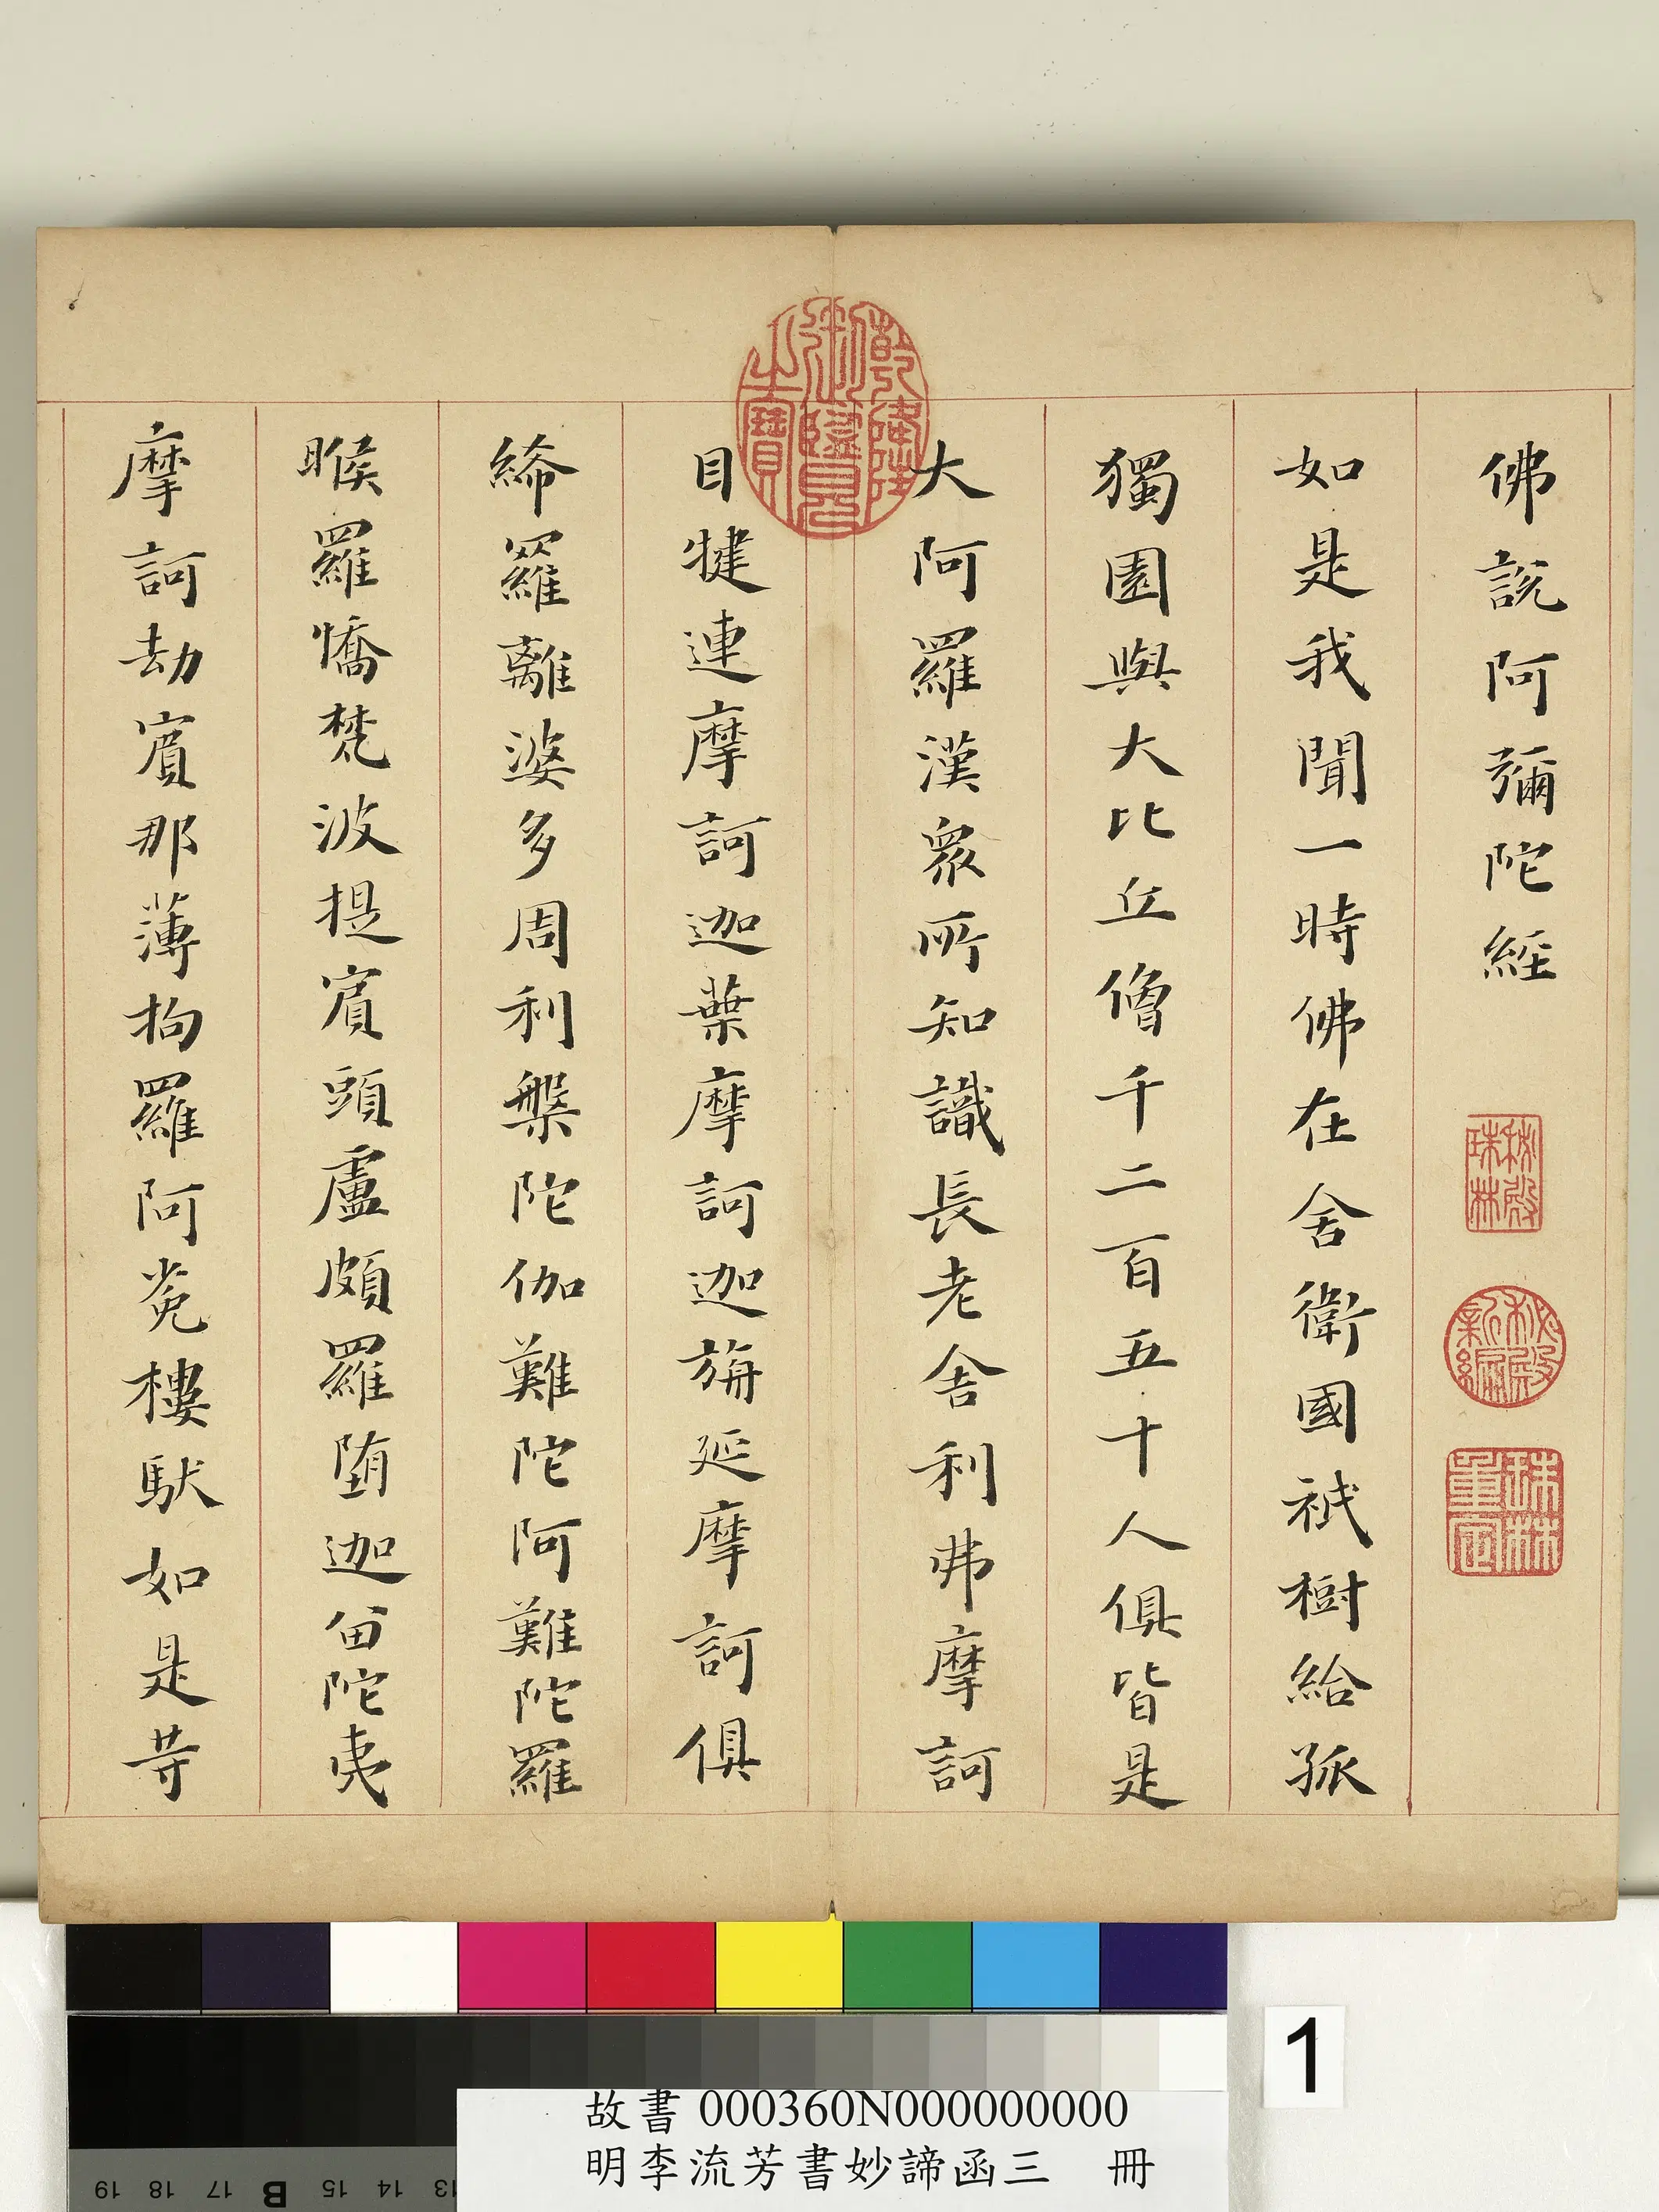 佛說阿彌陀經
秘殿珠林
秘殿新編
珠林重定
如是我聞一時佛在舍衛國祇樹給孤
獨園與大比丘僧千二百五十人俱皆是
大阿羅漢眾所知識長老舍利弗摩訶
乾隆御覽之寶
目犍連摩訶迦葉摩訶迦旃延摩訶俱
絺羅離婆多周利槃陀伽難陀阿難陀羅
睺羅憍梵波提賓頭盧頗羅墮迦留陀夷
摩訶劫賓那薄拘羅阿㝹樓馱如是等
1
故書 000360N000000000
明李流芳書妙諦函三 冊
19 18 17 B 15 14 13